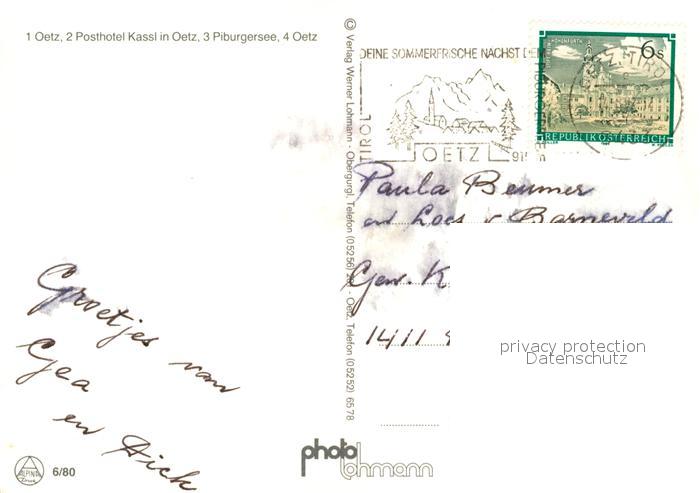 1 Oetz, 2 Posthotel Kassl in Oetz, 3 Piburgersee, 4 Oetz
© Verlag Werner Lohmann - Obergurgl, Telefon (05256) - Oetz, Telefon (05252) 6578
DEINE SOMMERFRISCHE NÄCHST DEM
TIROL
OETZ
6s
REPUBLIK ÖSTERREICH
Paula Beumer
en Loes v Barneveld
Gen. K
1411
privacy protection
Datenschutz
Groetjes van
Gea
en Dick
ALPINA
6/80
photo
lohmann